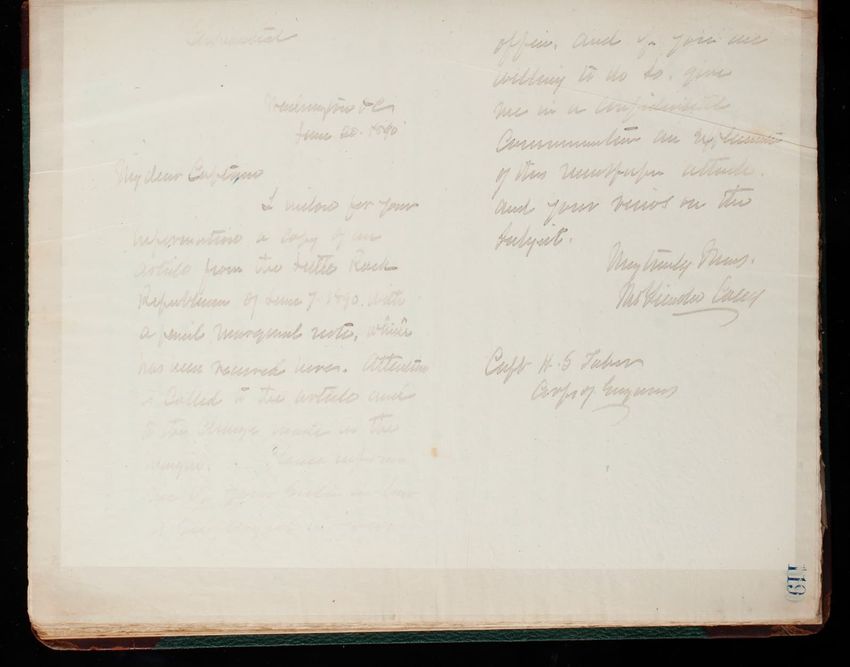 Confidential
Washington DC
June 20. 1890
My dear Captain
I enclose for your
information a copy of an
article from the Little Rock
Republican of June 7. 1890. with
a pencil marginal note, which
has been received here. Attention
is called to the article and
to the charge made in the
margin. Please inform
me
office, and if you are
willing to do so, give
me in a confidential
Communication an explanation
of this newspaper article,
and your views on the
subject.
Very truly Yours,
Thos Lincoln Casey
Capt H. S Taber
Corps of Engineers
119